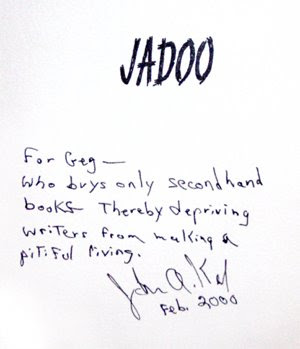 JADOO
For Geg—
who buys only secondhand
books Thereby depriving
writers from making a
pitiful living.
John A. Keel
Feb. 2000